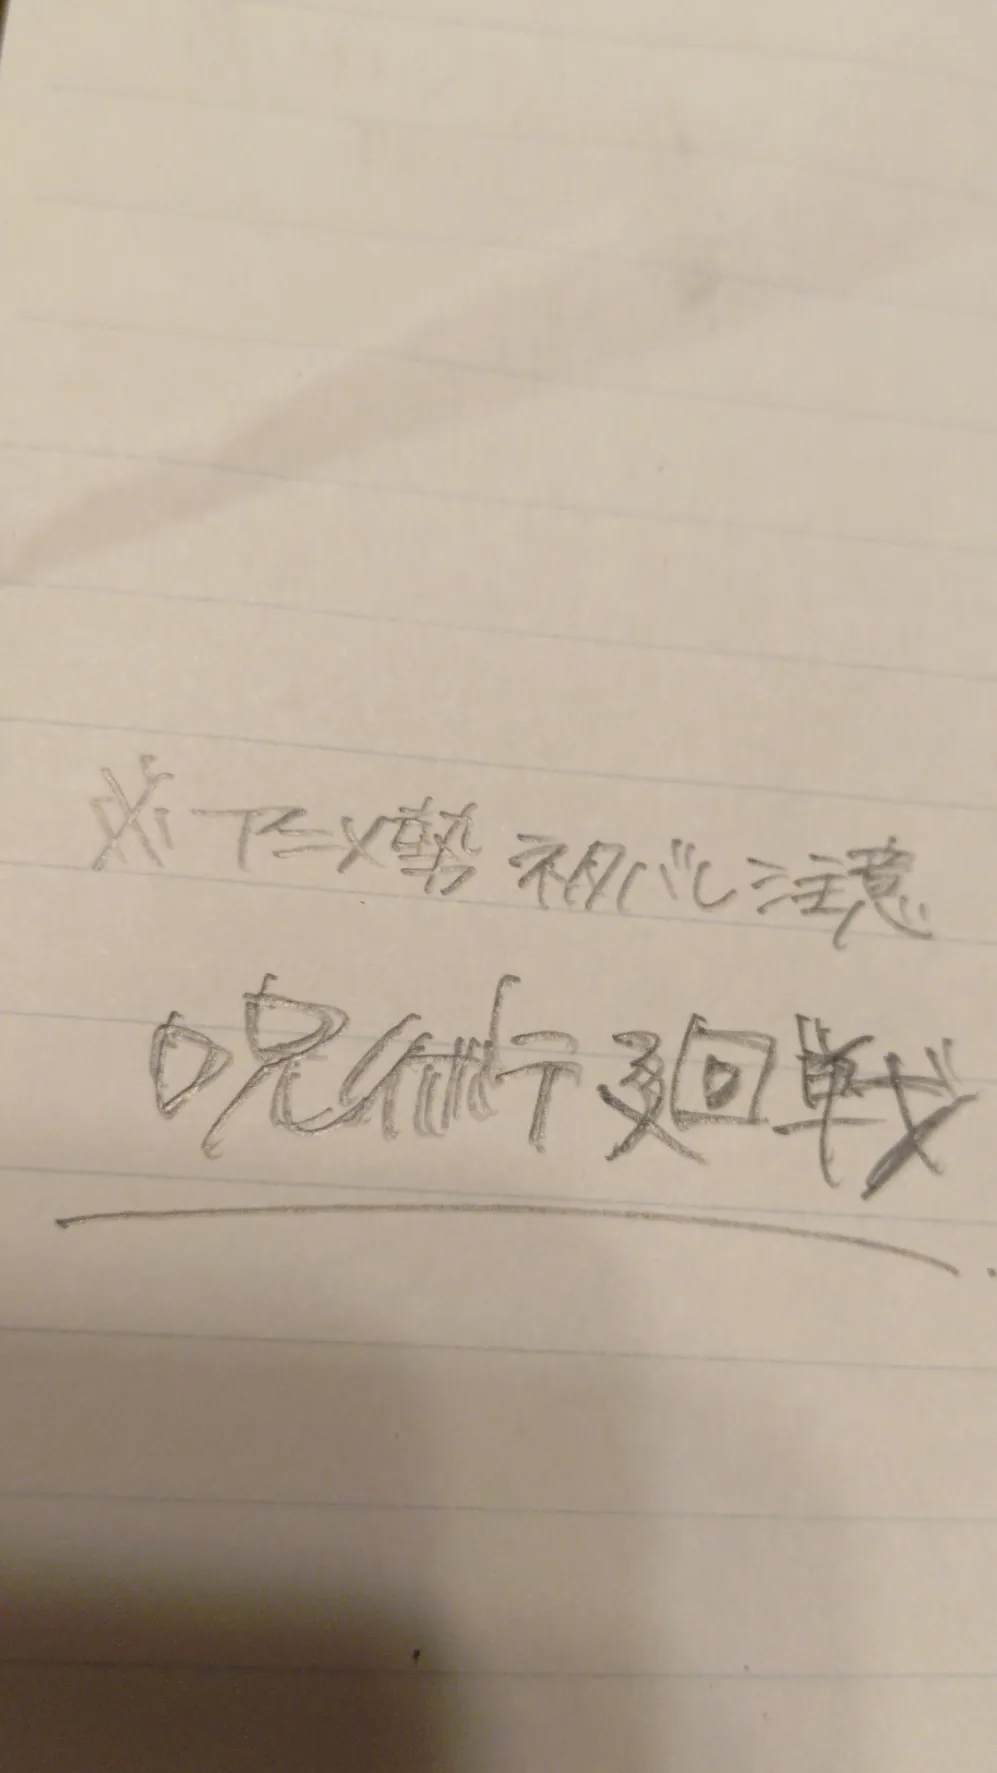 ※アニメ勢 ネタバレ注意
呪術廻戦